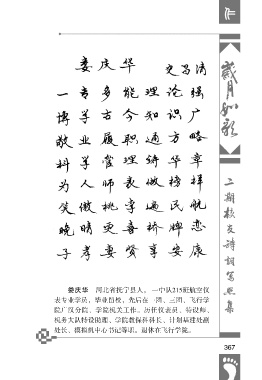 作
岁月如歌
娄庆华 文昌清
一专多能理论强
博学古今知识广
敬业履职通方略
科学管理绮华章
为人师表做榜样
笑傲桃李遍民航
晚晴更喜桥牌恋
子孝妻贤享安康
二期校友诗词写照集
娄庆华 河北省抚宁县人。一中队215班航空仪
表专业学员，毕业留校，先后在一团、三团、飞行学
院广汉分院、学院机关工作。历任仪表员、特设师、
机务大队特设助理、学院教保科科长、计划基建处副
处长、模拟机中心书记等职。退休在飞行学院。
367